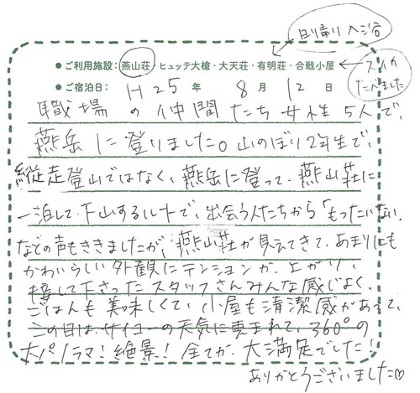 日帰り入浴
●ご利用施設：燕山荘・ヒュッテ大槍・大天荘・有明荘・合戦小屋
スイカ
たべました
●ご宿泊日： H25年 8月 12日
職場の仲間たち女性5人で、
燕岳に登りました。山のぼり2年生で、
縦走登山ではなく、燕岳に登って、燕山荘に
一泊して下山するルートで、出会う人たちから「もったいない」
などの声もききましたが、燕山荘が見えてきて、あまりにも
かわいらしい外観にテンションが上がり、
接して下さったスタッフさんみんな感じよく、
ごはんも美味しくて、小屋も清潔感があって、
この日はサイコーの天気に恵まれて、360°の
大パノラマ！絶景！全てが大満足でした！
ありがとうございました♡